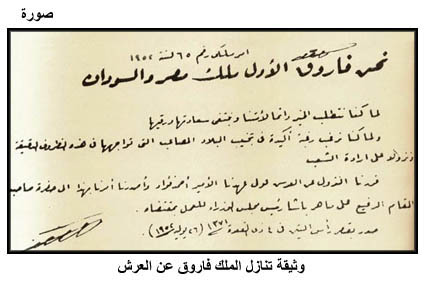 صورة
أمر ملكي رقم ٦٥ لسنة ١٩٥٢
نحن فاروق الأول ملك مصر والسودان
لما كنا نتطلب الخير دائما لأمتنا ونبتغي سعادتها ورقيها
ولما كنا نرغب رغبة أكيدة في تجنيب البلاد المصاعب التي تواجهها في هذه الظروف الدقيقة
ونزولا على إرادة الشعب
قررنا النزول عن العرش لولي عهدنا الأمير أحمد فؤاد وأصدرنا أمرنا بهذا إلى حضرة صاحب
المقام الرفيع علي ماهر باشا رئيس مجلس الوزراء للعمل بمقتضاه
صدر بقصر رأس التين في ٤ ذي القعدة ١٣٧١ (٢٦ يوليه ١٩٥٢)
وثيقة تنازل الملك فاروق عن العرش